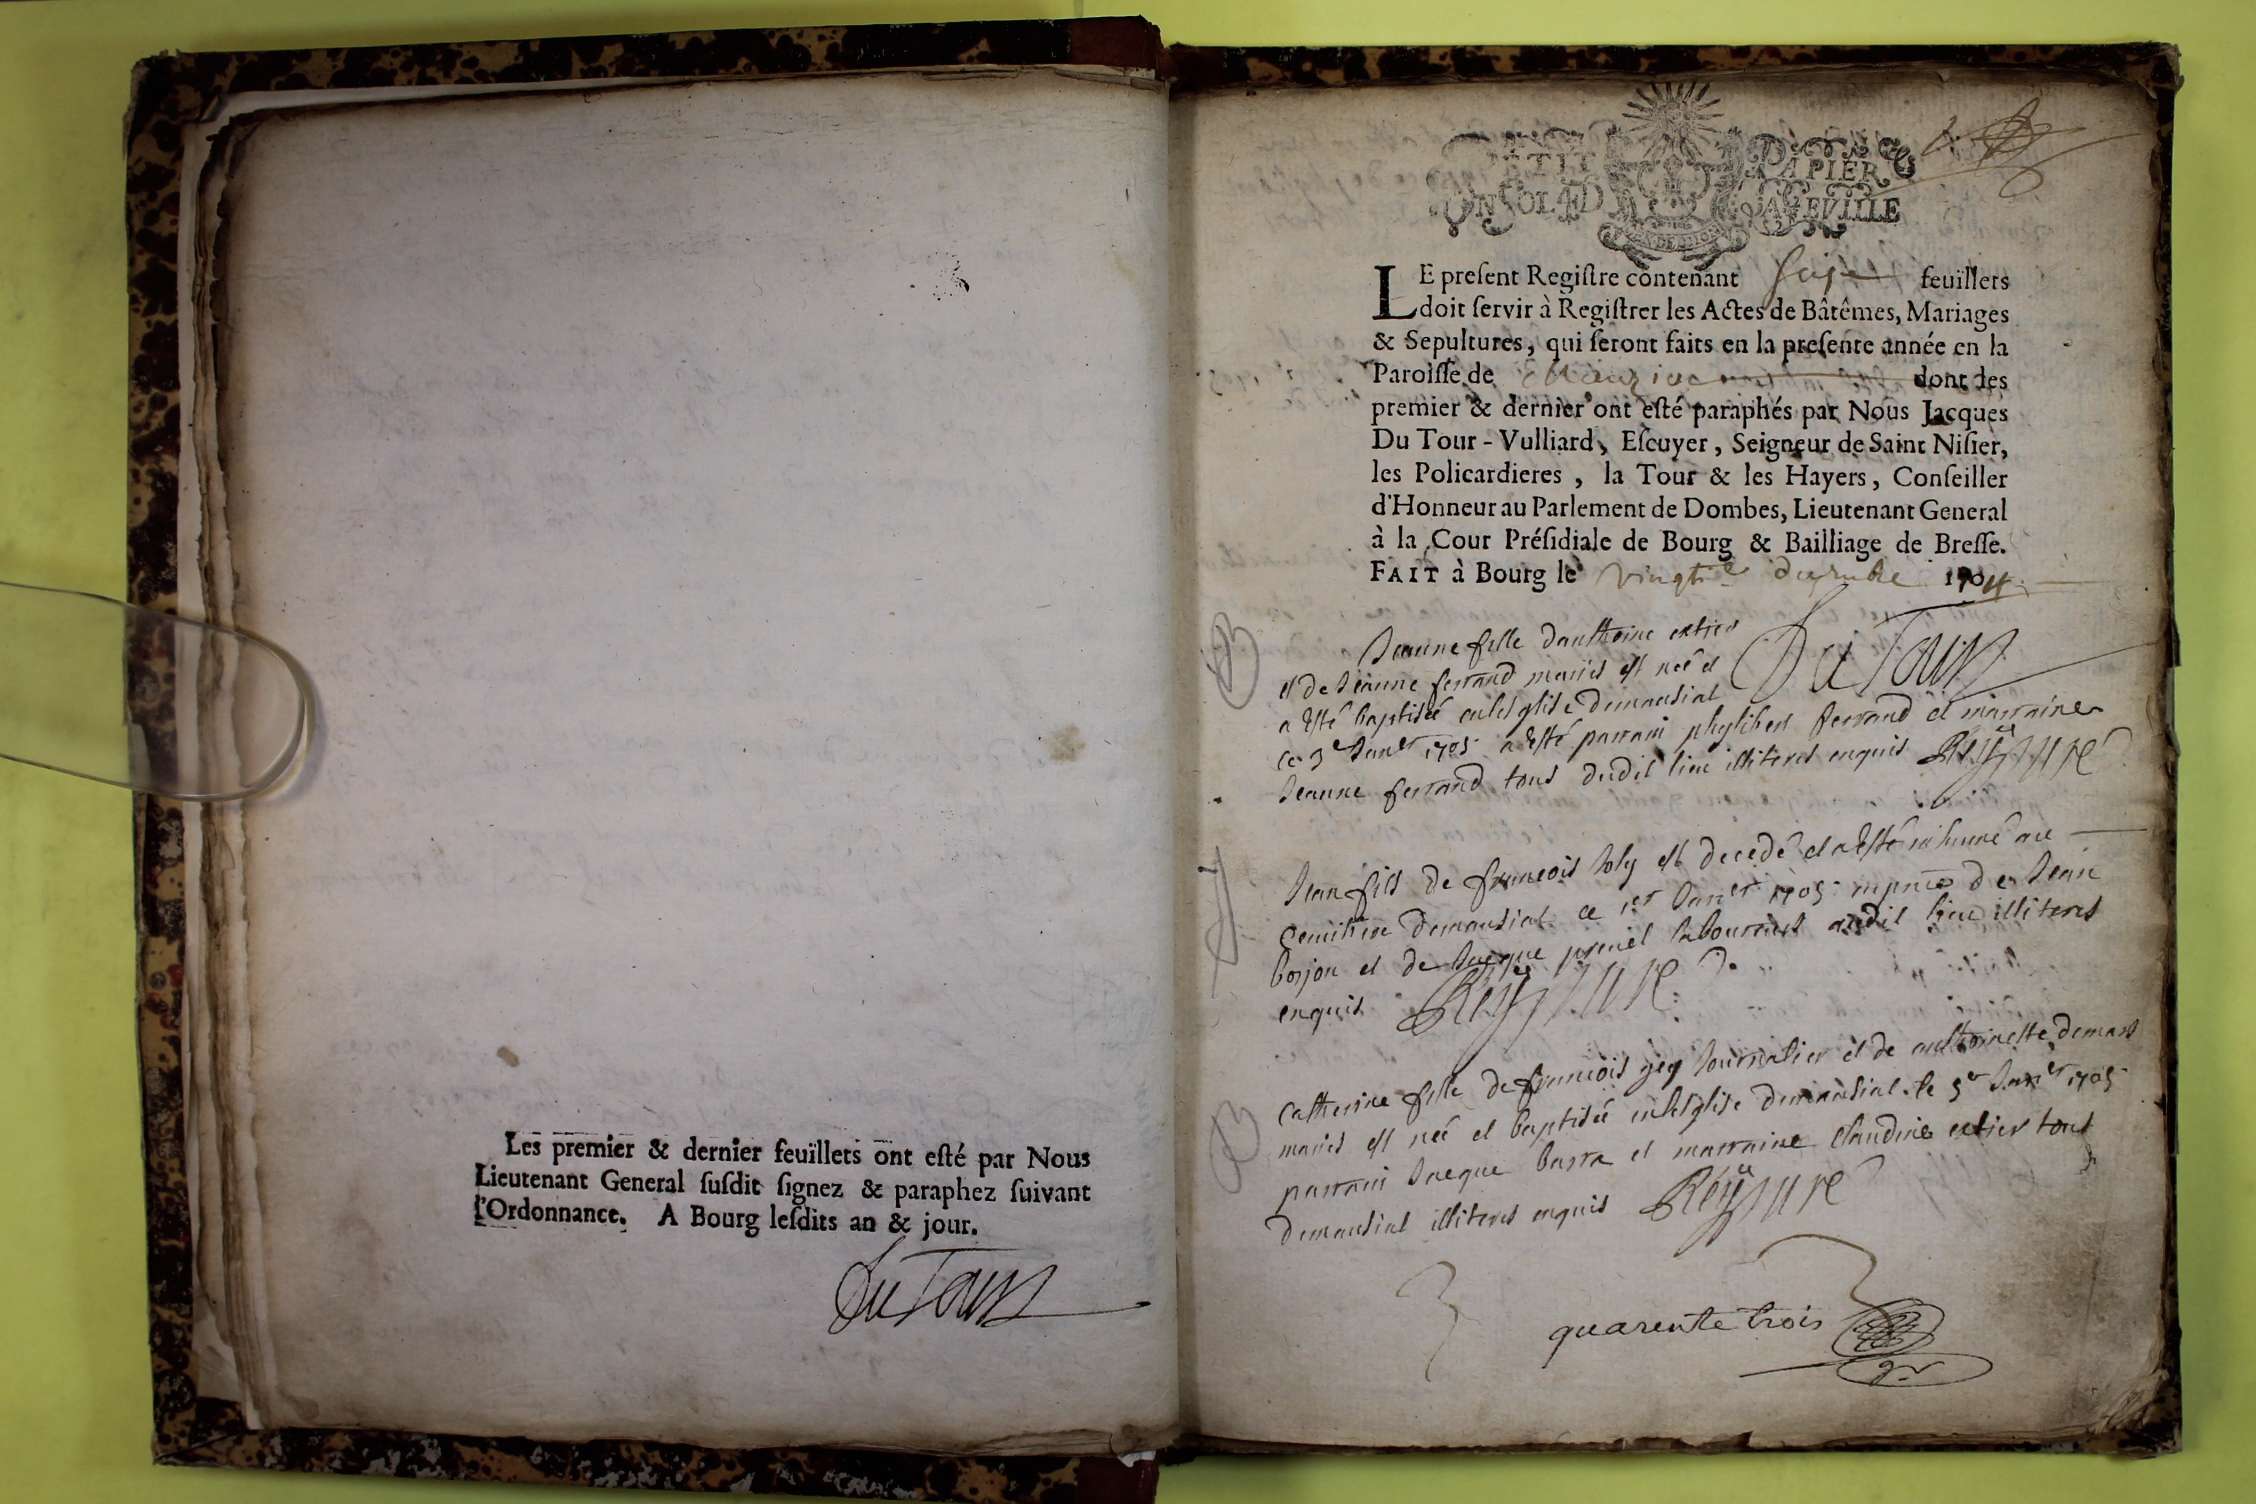 Les premier & dernier feuïllets ont esté par Nous
Lieutenant General susdit signez & paraphez suivant
l'Ordonnance. A Bourg lesdits an & jour.
Du Tour
PETIT PAPIER
UN SOL 4 D LA FEUILLE
LE present Registre contenant seize feuillets
doit servir à Registrer les Actes de Bâtêmes, Mariages
& Sepultures, qui seront faits en la presente année en la
Paroisse de dont les
premier & dernier ont esté paraphés par Nous Jacques
Du Tour - Vulliard, Escuyer, Seigneur de Saint Nisier,
les Policardieres, la Tour & les Hayers, Conseiller
d'Honneur au Parlement de Dombes, Lieutenant General
à la Cour Présidiale de Bourg & Bailliage de Bresse.
FAIT à Bourg le vingt 1704
Du Tour
B
Jeanne fille danthoine extier
et de Jeanne ferrand mariés est neé et
a esté baptiseé en leglise demansiat
ce 3e Janer 1705 a esté parrain phylibert ferrand et marraine
Jeanne ferrand tous dudit lieu illiteres enquis Reyssure
Jean fils de francois Joly est decedé et a esté inhumé au
cemitiere demansiat ce 1er Janer 1705 de Jean
borjon et de Jacque laboureurs dudit lieu illiteres
enquis Reyssure
B
catherine fille de francois journalier et de anthoinette demars
mariés est neé et baptiseé en leglise demansiat le 5e Janer 1705
parrain Jacque barra et marraine claudine extier tous
demansiat illiteres enquis Reyssure
quarente trois